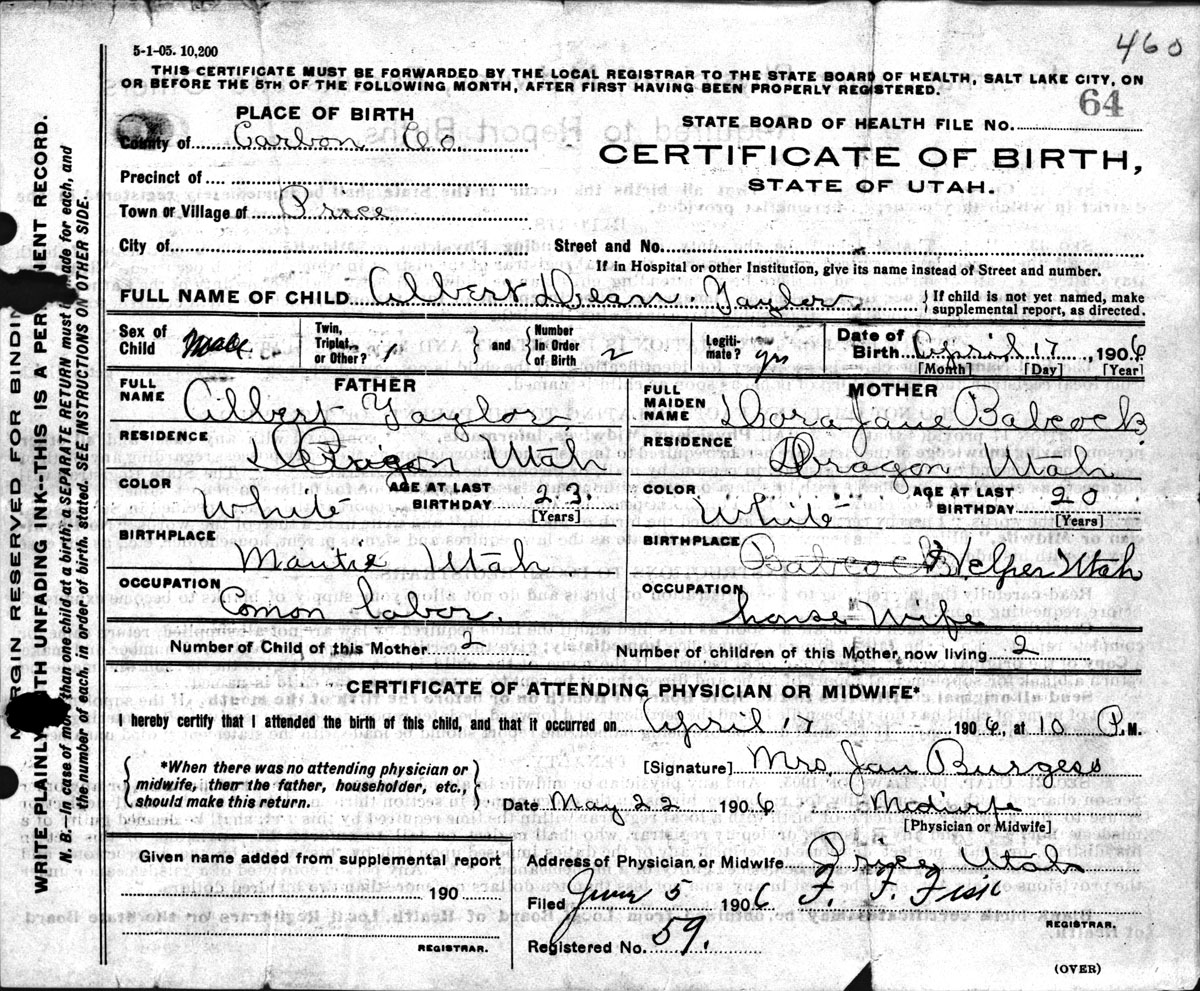 460
5-1-05. 10,200
THIS CERTIFICATE MUST BE FORWARDED BY THE LOCAL REGISTRAR TO THE STATE BOARD OF HEALTH, SALT LAKE CITY, ON
OR BEFORE THE 5TH OF THE FOLLOWING MONTH, AFTER FIRST HAVING BEEN PROPERLY REGISTERED.
64
PLACE OF BIRTH
STATE BOARD OF HEALTH FILE NO.
County of Carbon Co
CERTIFICATE OF BIRTH,
STATE OF UTAH.
Precinct of
Town or Village of Price
City of Street and No.
If in Hospital or other Institution, give its name instead of Street and number.
FULL NAME OF CHILD Albert Dean Taylor { If child is not yet named, make supplemental report, as directed.
Sex of Child Male Twin, Triplet, or Other? 1 } and { Number in Order of Birth 2 Legiti-mate? yes Date of Birth April 17, 1906
[Month] [Day] [Year]
FATHER
FULL NAME Albert Taylor
RESIDENCE Dragon Utah
COLOR White AGE AT LAST BIRTHDAY 23.
[Years]
BIRTHPLACE Mantie Utah
OCCUPATION Comon labor.
MOTHER
FULL MAIDEN NAME Dora Jane Babcock.
RESIDENCE Dragon Utah
COLOR White AGE AT LAST BIRTHDAY 20
[Years]
BIRTHPLACE Babcock Helper Utah
OCCUPATION house Wife
Number of Child of this Mother 2 Number of children of this Mother now living 2
CERTIFICATE OF ATTENDING PHYSICIAN OR MIDWIFE*
I hereby certify that I attended the birth of this child, and that it occurred on April 17 1906, at 10 P.M.
{ *When there was no attending physician or midwife, then the father, householder, etc., should make this return. }
[Signature] Mrs Jan Burgess
Date May 22 1906
[Physician or Midwife]
Given name added from supplemental report
190
REGISTRAR.
Address of Physician or Midwife Price Utah
Filed June 5 1906 F. F. Fisk
REGISTRAR.
Registered No. 59.
(OVER)
MARGIN RESERVED FOR BINDING
WRITE PLAINLY WITH UNFADING INK--THIS IS A PERMANENT RECORD.
N. B.--In case of more than one child at a birth, a SEPARATE RETURN must be made for each, and
the number of each, in order of birth, stated. SEE INSTRUCTIONS ON OTHER SIDE.